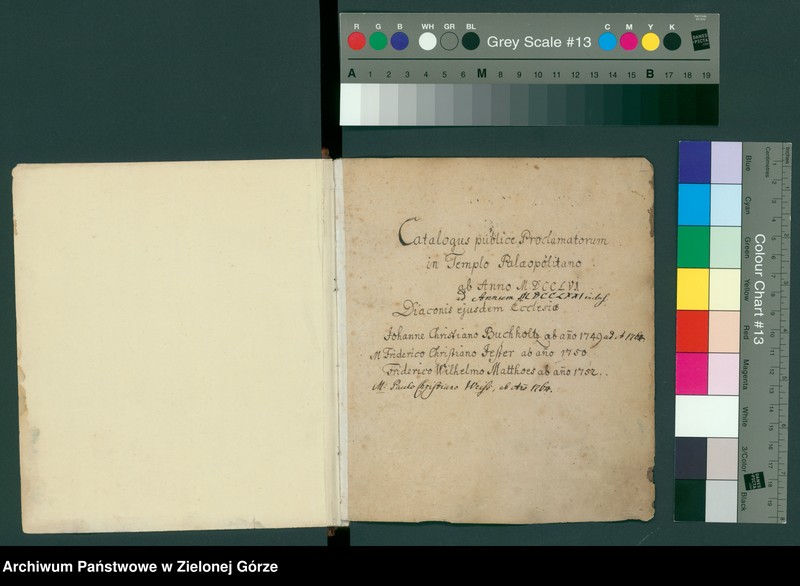 R G B WH GR BL Grey Scale #13 C M Y K
A 1 2 3 4 5 6 M 8 9 10 11 12 13 14 15 B 17 18 19
Catalogus publice Proclamatorum
in Templo Palaeopolitano
ab Anno MDCCLVI
ad Annum MDCCLXXI inclus.
Diaconis ejusdem Ecclesiæ
Johanne Christiano Buchholtz ab año 1749 ad A 1760.
M Friderico Christiano Jester ab año 1750
Friderico Wilhelmo Matthoes ab año 1752.
M. Paulo Christiano Weiss, ab Año 1760.
Colour Chart #13
Blue
Cyan
Green
Yellow
Red
Magenta
White
3/Color
Black
Centimetres
Inches
DANES
PICTA
Archiwum Państwowe w Zielonej Górze